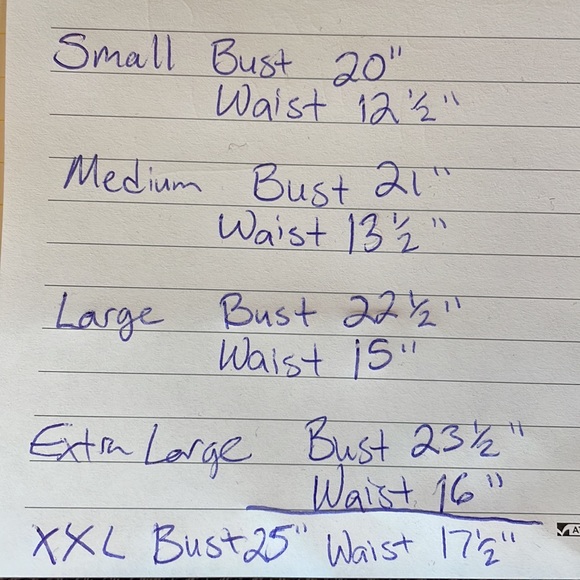 Small Bust 20"
Waist 12 1/2"
Medium Bust 21"
Waist 13 1/2"
Large Bust 22 1/2"
Waist 15"
Extra Large Bust 23 1/2"
Waist 16"
XXL Bust 25" Waist 17 1/2"